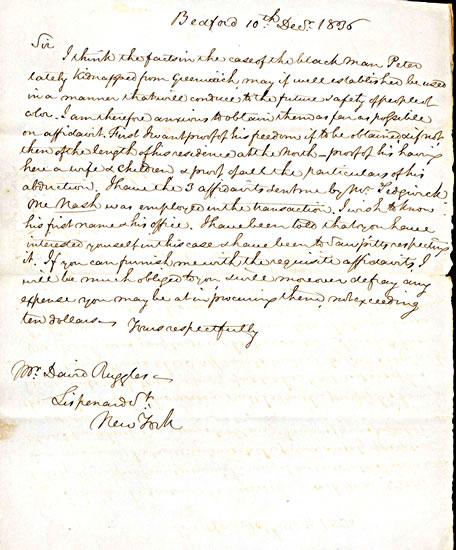 Bedford 10th Dec. 1836
Sir
I think the facts in the case of the black man Peter
lately kidnapped from Greenwich, may if well established be used
in a manner that will conduce to the future safety of people of
color. I am therefore anxious to obtain them as far as possible
on affidavit. First I want proof of his freedom if to be obtained, if not,
then of the length of his residence at the North - proof of his having
here a wife & children & proof of all the particulars of his
abduction. I have the 3 affidavits sent me by Mr. Sedgwick
One Nash was employed in the transaction. I wish to know
his first name & his office. I have been told that you have
interested yourself in this case & have been to respecting
it. If you can furnish me with the requisite affidavits, I
will be much obliged to you, & will moreover defray any
expense you may be at in procuring them, not exceeding
ten dollars - Yours respectfully
Mr. David Ruggles -
Lispenard St.
New York